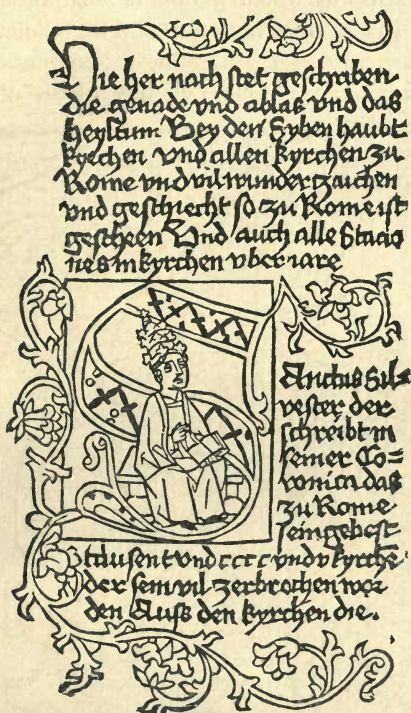 Hie her nach stet geschriben
die genade vnd ablas vnd das
heyltum Bey den Syben haubt
kyrchen vnd allen kyrchen zu
Rome vnd vil wunderzaichen
vnd geschiecht so zu Rome ist
gescheen Vnd auch alle Stacio
nes in kyrchen vber iare
Anctus Sil=
vester der
schreibt in
seiner Co=
ronica das
zu Rome
sein gebest
tausent vnd cccc vnd v kyrche
der sein vil zerbrochen wor
den Auss den kyrchen die.